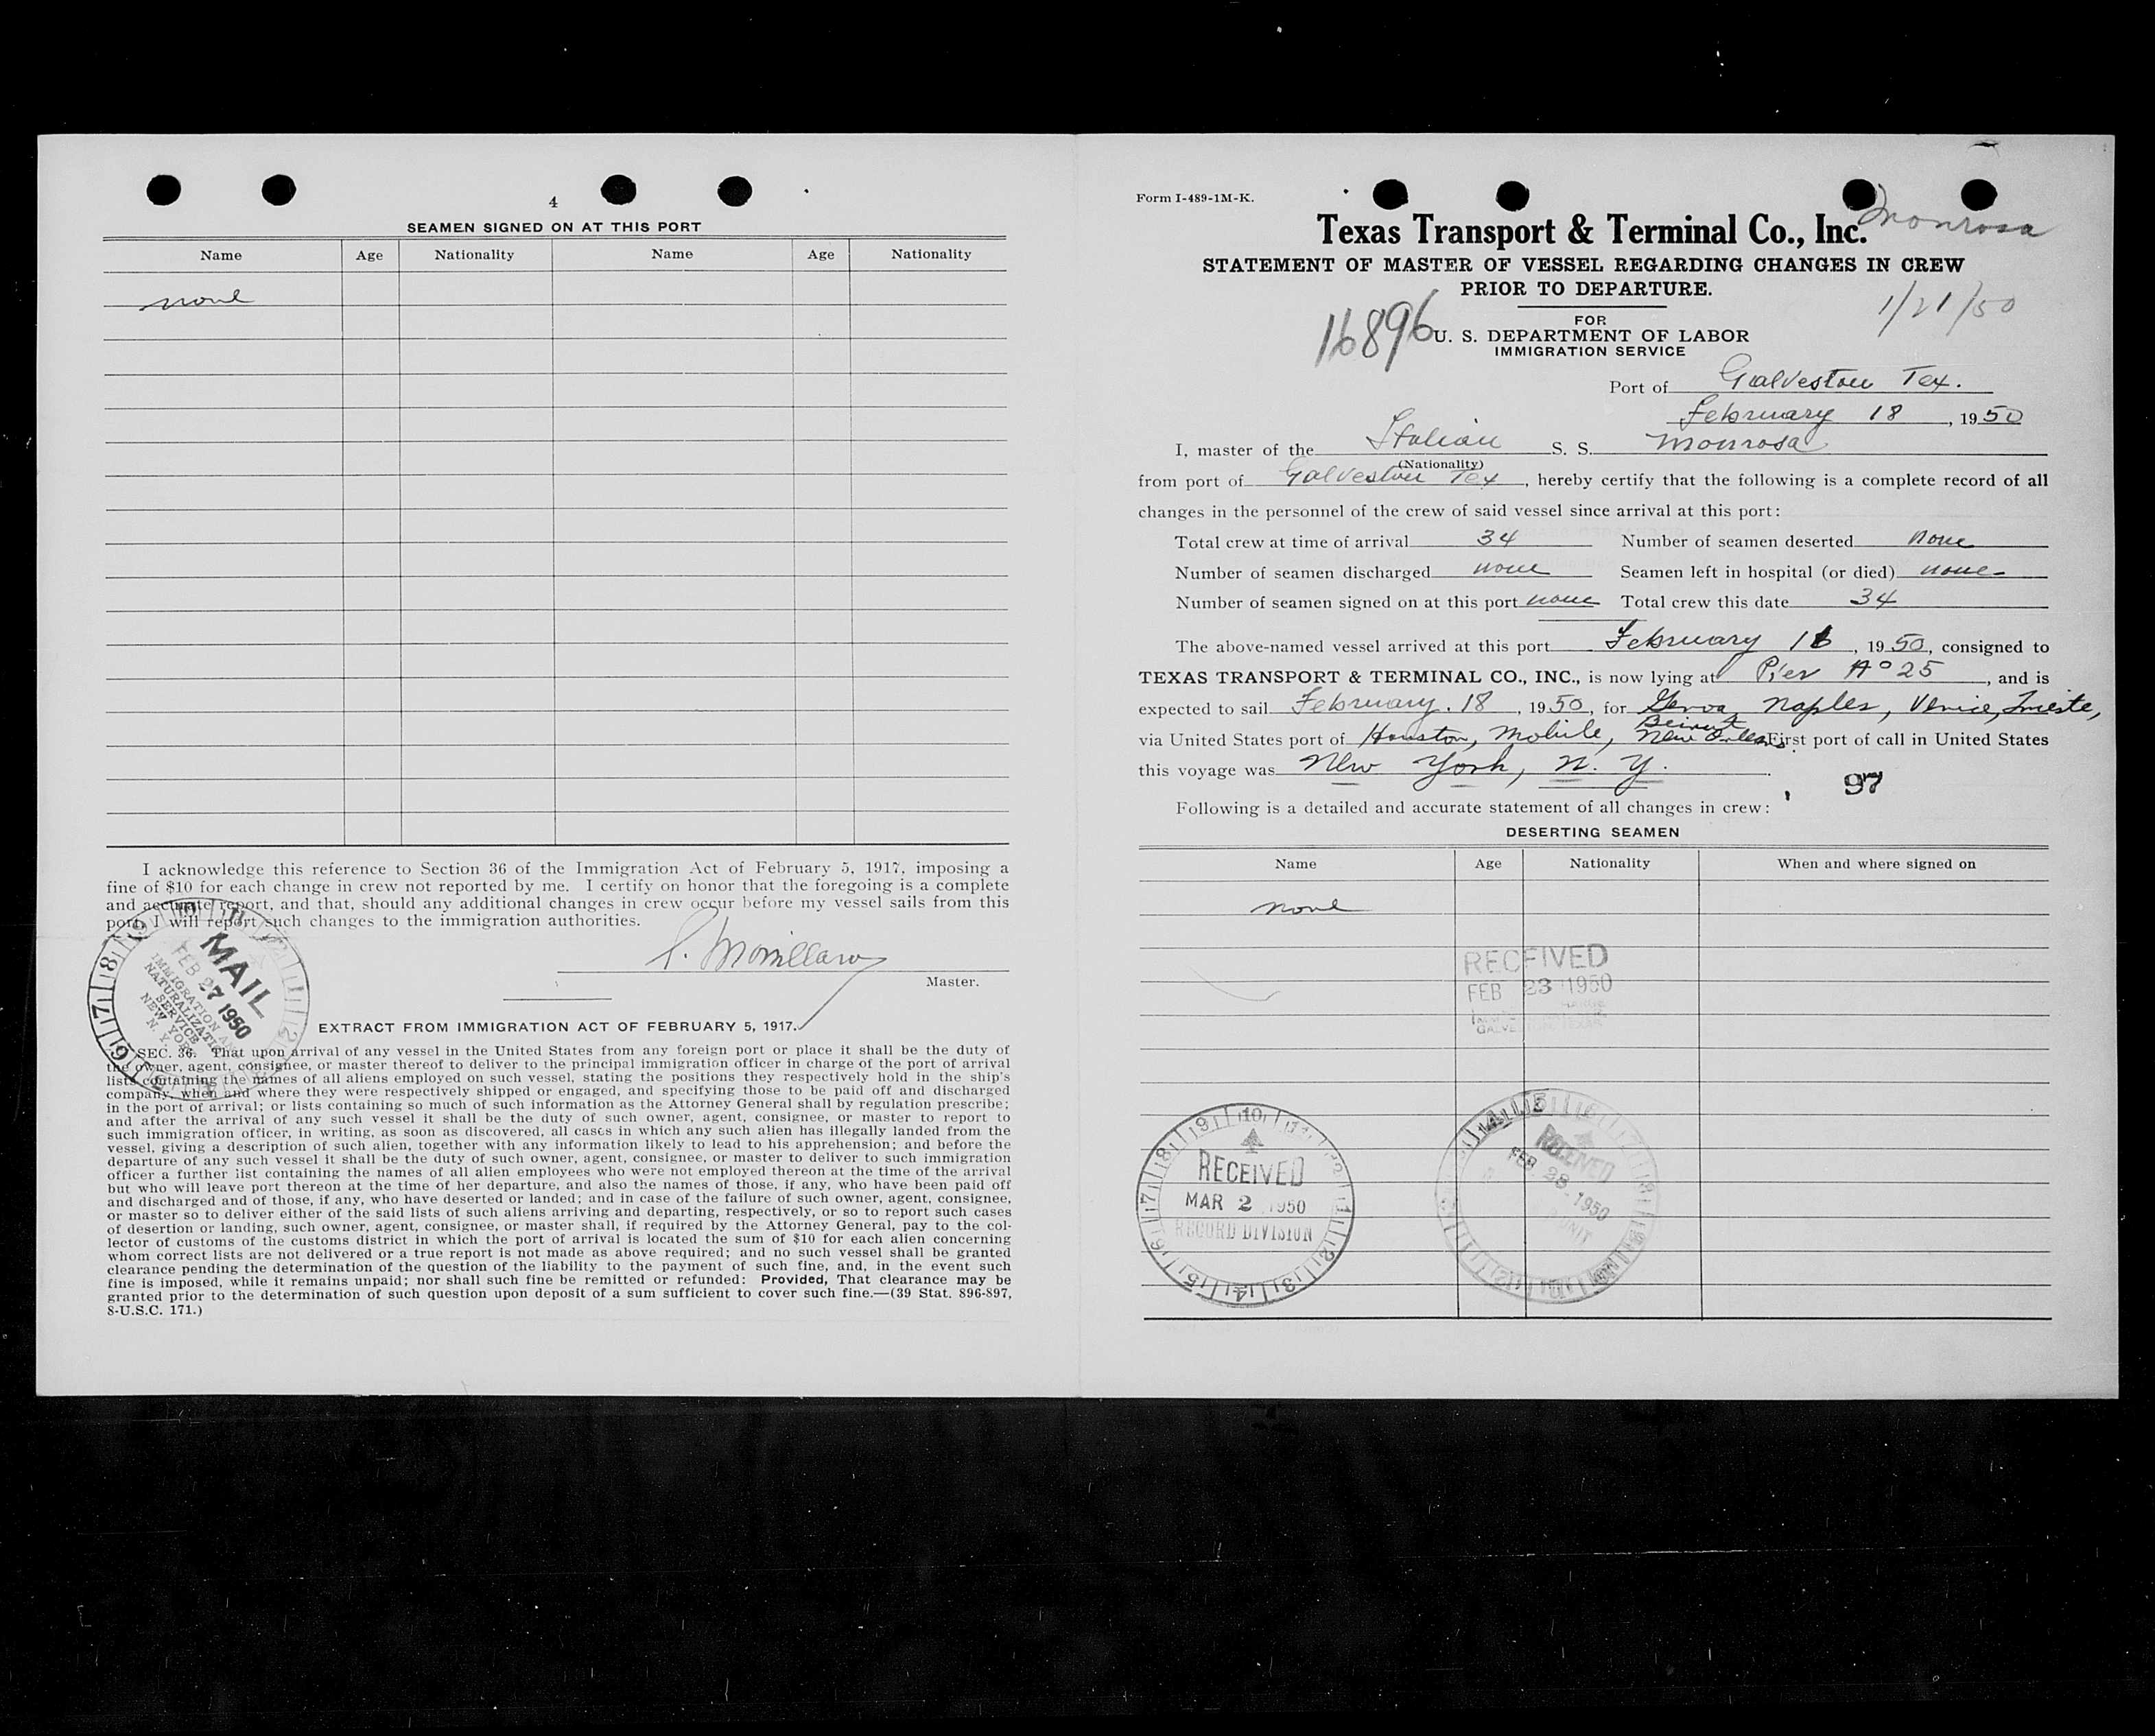 4
SEAMEN SIGNED ON AT THIS PORT
Name Age Nationality Name Age Nationality
none
I acknowledge this reference to Section 36 of the Immigration Act of February 5, 1917, imposing a
fine of $10 for each change in crew not reported by me. I certify on honor that the foregoing is a complete
and accurate report, and that, should any additional changes in crew occur before my vessel sails from this
port, I will report such changes to the immigration authorities.
Master.
MAIL
FEB 27 1950
IMMIGRATION AND
NATURALIZATION
SERVICE
NEW YORK
N. Y.
EXTRACT FROM IMMIGRATION ACT OF FEBRUARY 5, 1917.
SEC. 36. That upon arrival of any vessel in the United States from any foreign port or place it shall be the duty of
the owner, agent, consignee, or master thereof to deliver to the principal immigration officer in charge of the port of arrival
lists containing the names of all aliens employed on such vessel, stating the positions they respectively hold in the ship's
company, when and where they were respectively shipped or engaged, and specifying those to be paid off and discharged
in the port of arrival; or lists containing so much of such information as the Attorney General shall by regulation prescribe;
and after the arrival of any such vessel it shall be the duty of such owner, agent, consignee, or master to report to
such immigration officer, in writing, as soon as discovered, all cases in which any such alien has illegally landed from the
vessel, giving a description of such alien, together with any information likely to lead to his apprehension; and before the
departure of any such vessel it shall be the duty of such owner, agent, consignee, or master to deliver to such immigration
officer a further list containing the names of all alien employees who were not employed thereon at the time of the arrival
but who will leave port thereon at the time of her departure, and also the names of those, if any, who have been paid off
and discharged and of those, if any, who have deserted or landed; and in case of the failure of such owner, agent, consignee,
or master so to deliver either of the said lists of such aliens arriving and departing, respectively, or so to report such cases
of desertion or landing, such owner, agent, consignee, or master shall, if required by the Attorney General, pay to the col-
lector of customs of the customs district in which the port of arrival is located the sum of $10 for each alien concerning
whom correct lists are not delivered or a true report is not made as above required; and no such vessel shall be granted
clearance pending the determination of the question of the liability to the payment of such fine, and, in the event such
fine is imposed, while it remains unpaid; nor shall such fine be remitted or refunded: Provided, That clearance may be
granted prior to the determination of such question upon deposit of a sum sufficient to cover such fine.—(39 Stat. 896-897,
8-U.S.C. 171.)
Form I-489-1M-K.
Monrosa
Texas Transport & Terminal Co., Inc.
STATEMENT OF MASTER OF VESSEL REGARDING CHANGES IN CREW
PRIOR TO DEPARTURE.
1/21/50
16896
FOR
U. S. DEPARTMENT OF LABOR
IMMIGRATION SERVICE
Port of Galveston Tex.
February 18, 1950
I, master of the Italian S. S. Monrosa
(Nationality)
from port of Galveston Tex, hereby certify that the following is a complete record of all
changes in the personnel of the crew of said vessel since arrival at this port:
Total crew at time of arrival 34 Number of seamen deserted none
Number of seamen discharged none Seamen left in hospital (or died) none
Number of seamen signed on at this port none Total crew this date 34
The above-named vessel arrived at this port February 16, 1950, consigned to
TEXAS TRANSPORT & TERMINAL CO., INC., is now lying at Pier No 25, and is
expected to sail February. 18, 1950, for Genoa, Naples, Venice, Trieste,
Beirut
via United States port of Houston, Mobile, New Orleans. First port of call in United States
this voyage was New York, N. Y.
97
Following is a detailed and accurate statement of all changes in crew:
DESERTING SEAMEN
Name Age Nationality When and where signed on
none
RECEIVED
FEB 23 1950
RECEIVED
MAR 2 1950
RECORD DIVISION
RECEIVED
FEB 28 1950
UNIT